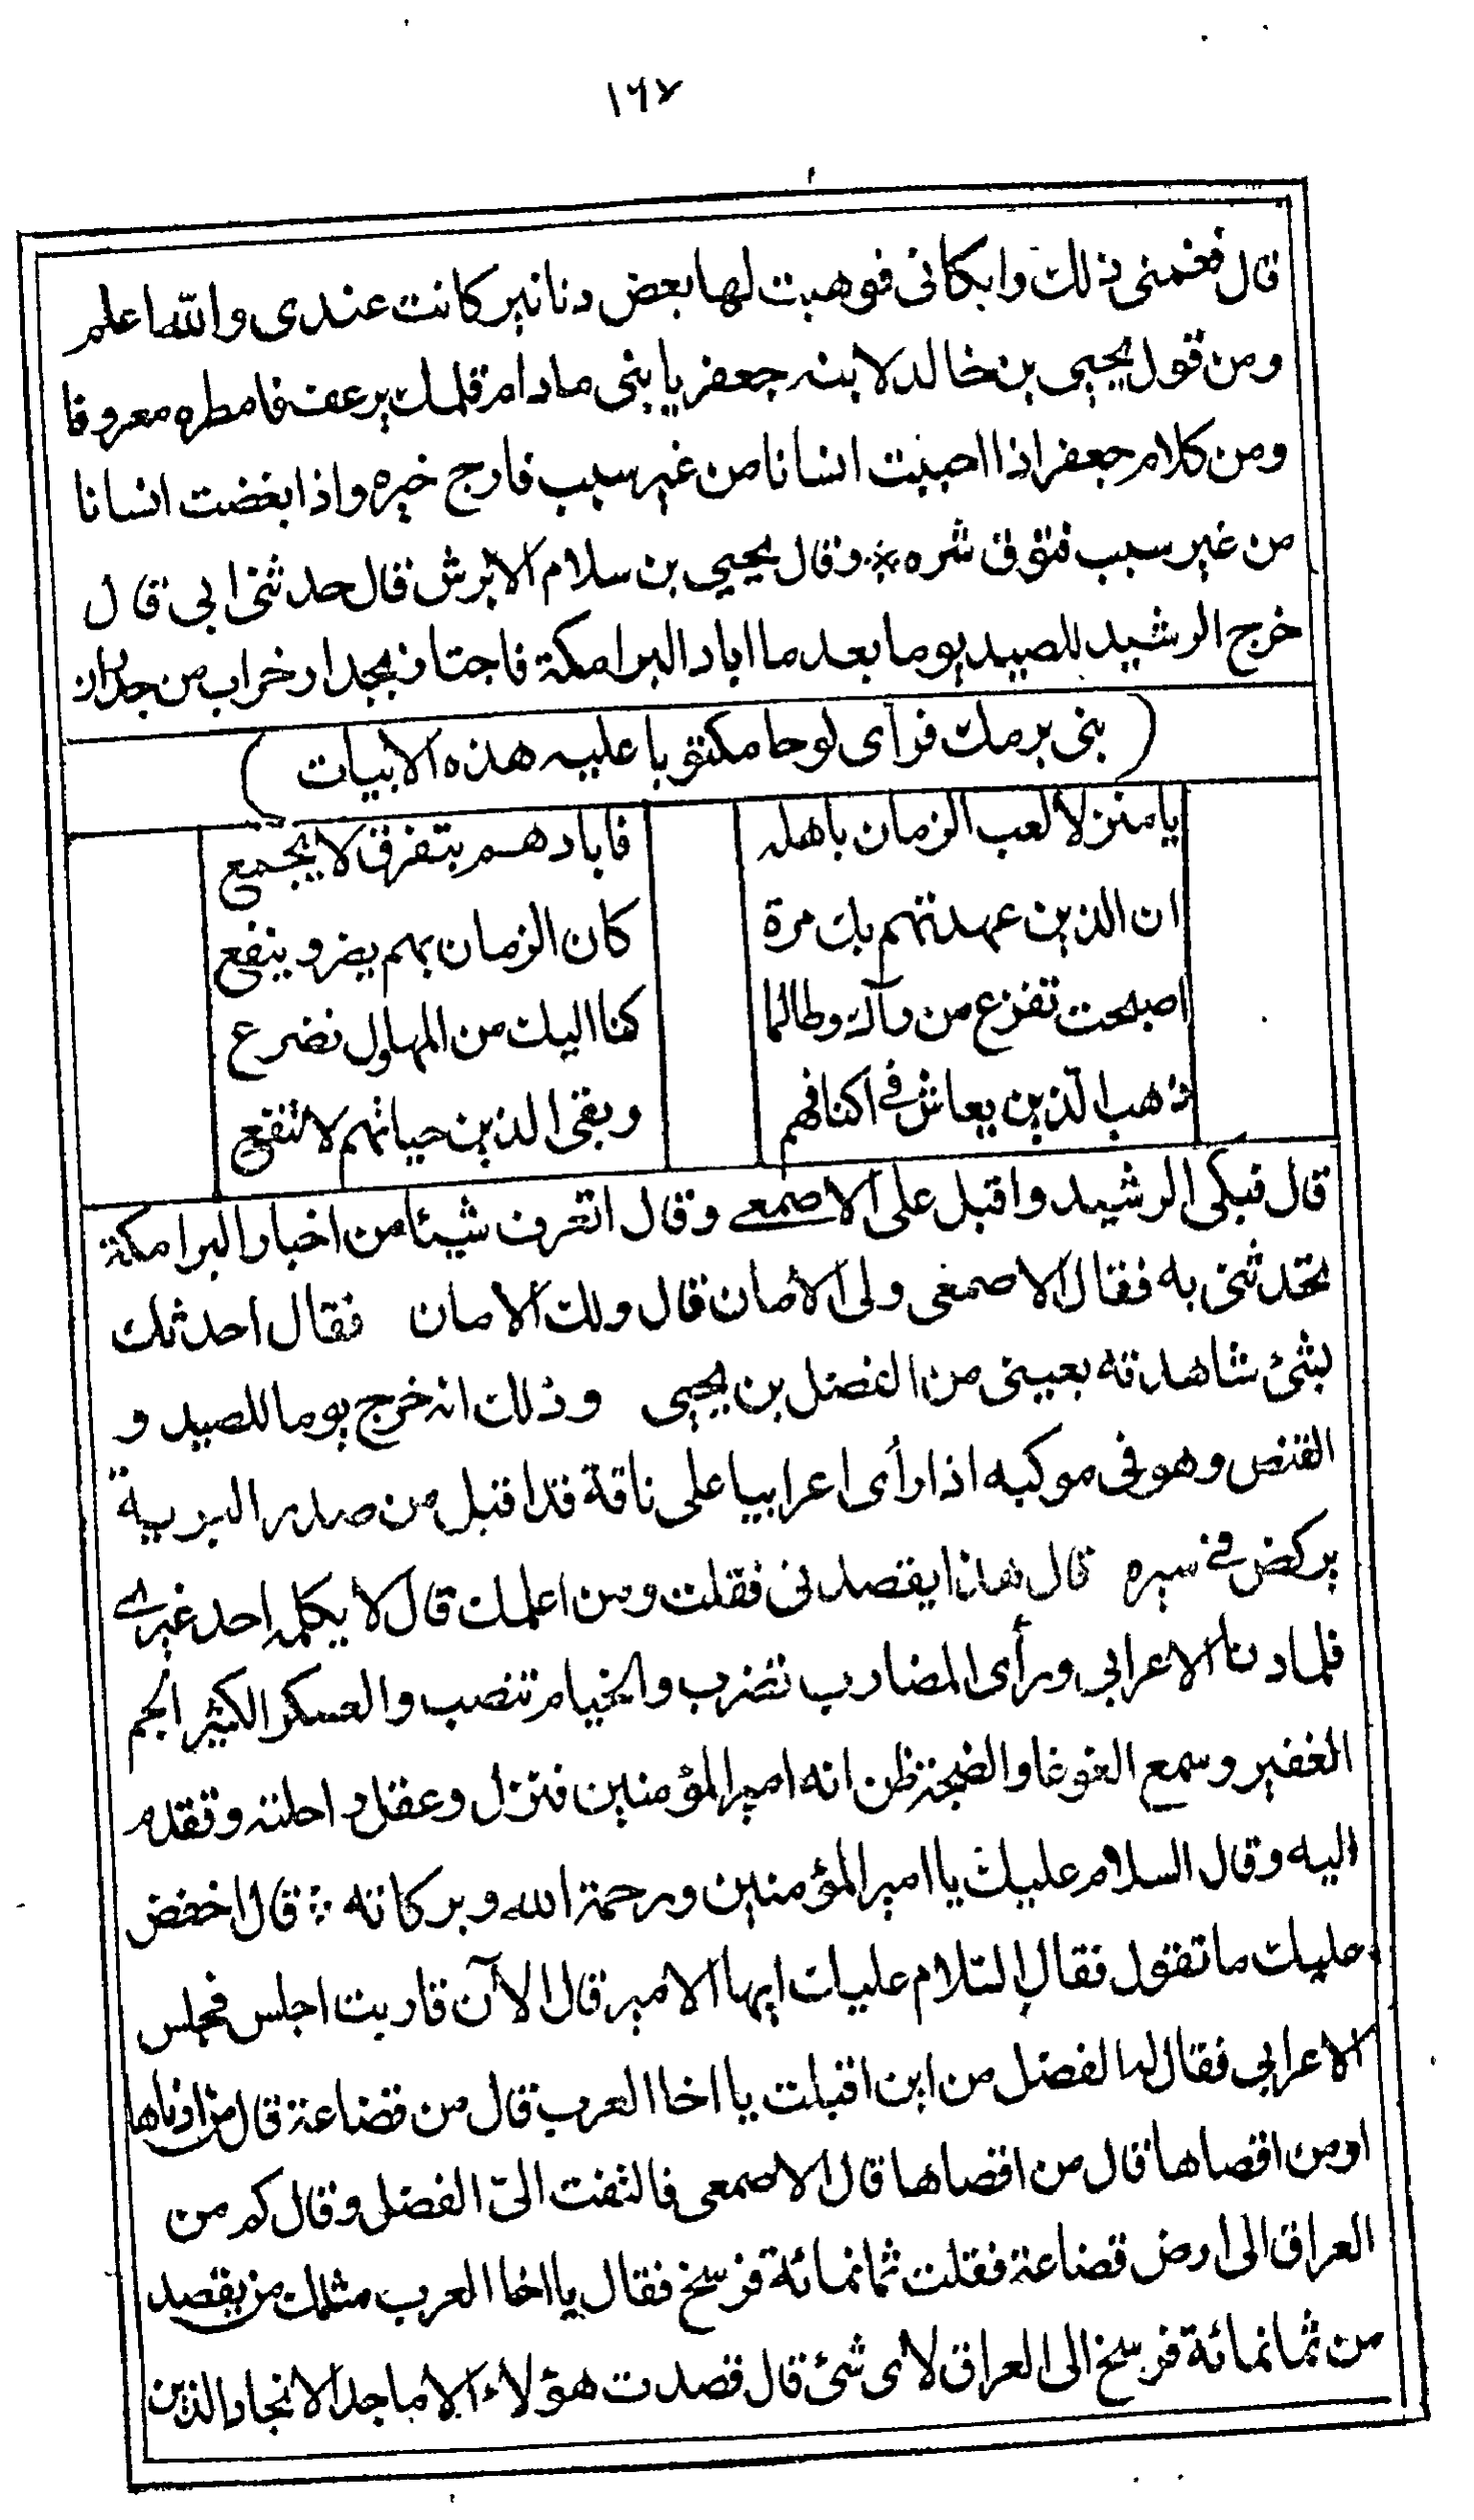 ١٦٧
قال فغمنى ذلك وابكانى فوهبت لها بعض دنانير كانت عندى والله اعلم
ومن قول يحيى بن خالد لابنه جعفر يا بنى مادام قلمك يرعف فامطره معروفا
ومن كلام جعفر اذا احببت انسانا من غير سبب فارج خيره واذا بغضت انسانا
من غير سبب فتوق شره * وقال يحيى بن سلام الابرش قال حدثنى ابى قال
خرج الرشيد للصيد يوما بعد ما اباد البرامكة فاجتاز بجدار خراب من جدران
( بنى برمك فرأى لوحا مكتوبا عليه هذه الابيات )
يا منزلا لعب الزمان باهله فابادهم بتفرق لا يجمع
ان الذين عهدتهم بك مرة كان الزمان بهم يضر وينفع
اصبحت تفزع من رآك وطالما كنا اليك من المهاول نضرع
ذهب الذين يعاش فى اكنافهم وبقى الذين حياتهم لا تنفع
قال فبكى الرشيد واقبل على الاصمعى وقال اتعرف شيئا من اخبار البرامكة
تحدثنى به فقال الاصمعى ولى الامان قال ولك الامان فقال احدثك
بشئ شاهدته بعينى من الفضل بن يحيى وذلك انه خرج يوما للصيد و
القنص وهو فى موكبه اذا رأى اعرابيا على ناقة قد اقبل من صدر البرية
يركض فى سيره قال هذا يقصدنى فقلت ومن اعلمك قال لا يكلمه احد غيرى
فلما دنا الاعرابى ورأى المضارب تضرب والخيام تنصب والعسكر الكثير الجم
الغفير وسمع الغوغا والضجة ظن انه امير المؤمنين فنزل وعقل راحلته وتقدم
اليه وقال السلام عليك يا امير المؤمنين ورحمة الله وبركاته * قال اخفض
عليك ما تقول فقال السلام عليك ايها الامير قال الآن قاربت اجلس فجلس
الاعرابى فقال له الفضل من اين اقبلت يا اخا العرب قال من قضاعة قال من ادناها
او من اقصاها قال من اقصاها قال الاصمعى فالتفت الىّ الفضل وقال كم من
العراق الى ارض قضاعة فقلت ثمانمائة فرسخ فقال يا اخا العرب مثلك من يقصد
من ثمانمائة فرسخ الى العراق لاى شئ قال قصدت هؤلاء الاماجد الانجاد الذين